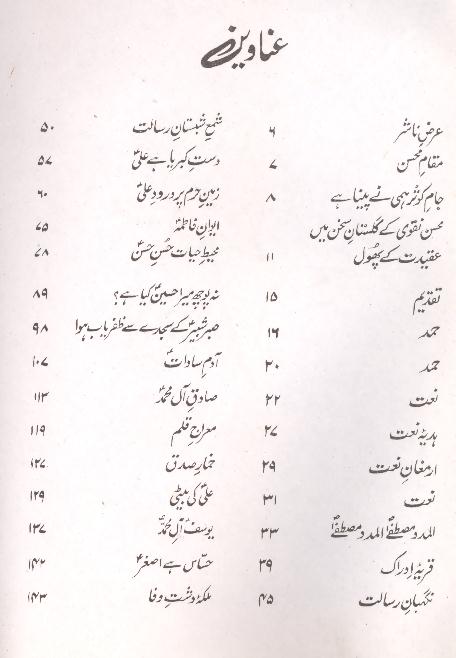 عناوین
عرضِ ناشر ۶
مقامِ محسن ۷
جامِ کوثر ہمی نے پینا ہے ۸
محسن نقوی کے گلستانِ سخن میں
عقیدت کے پھول ۱۱
تقدیم ۱۵
حمد ۱۶
حمد ۲۰
نعت ۲۲
ہدیۂ نعت ۲۷
ارمغانِ نعت ۲۹
نعت ۳۱
المدد مصطفیٰؐ المدد مصطفیٰؐ ۳۳
قریۂ ادراک ۳۹
نگہبانِ رسالت ۴۵
شمعِ شبستانِ رسالت ۵۰
دستِ کبریا ہے علیؑ ۵۷
زمینِ حرم پر درودِ علیؑ ۶۰
ایوانِ فاطمہؑ ۷۵
محیطِ حیات حُسنِ حسنؑ ۷۸
نہ پوچھ میرا حسینؑ کیا ہے؟ ۸۹
صبر شبیرؑ کے سجدے سے ظفر یاب ہوا ۹۸
آدمِ ساداتؑ ۱۰۷
صادقِ آلِ محمدؐ ۱۱۳
معراجِ قلم ۱۱۹
خمارِ صدق ۱۲۷
علیؑ کی بیٹی ۱۲۹
یوسفِ آلِ محمدؐ ۱۳۷
حسّاس ہے اصغرؑ ۱۴۲
ملکۂ دشتِ وفا ۱۴۳